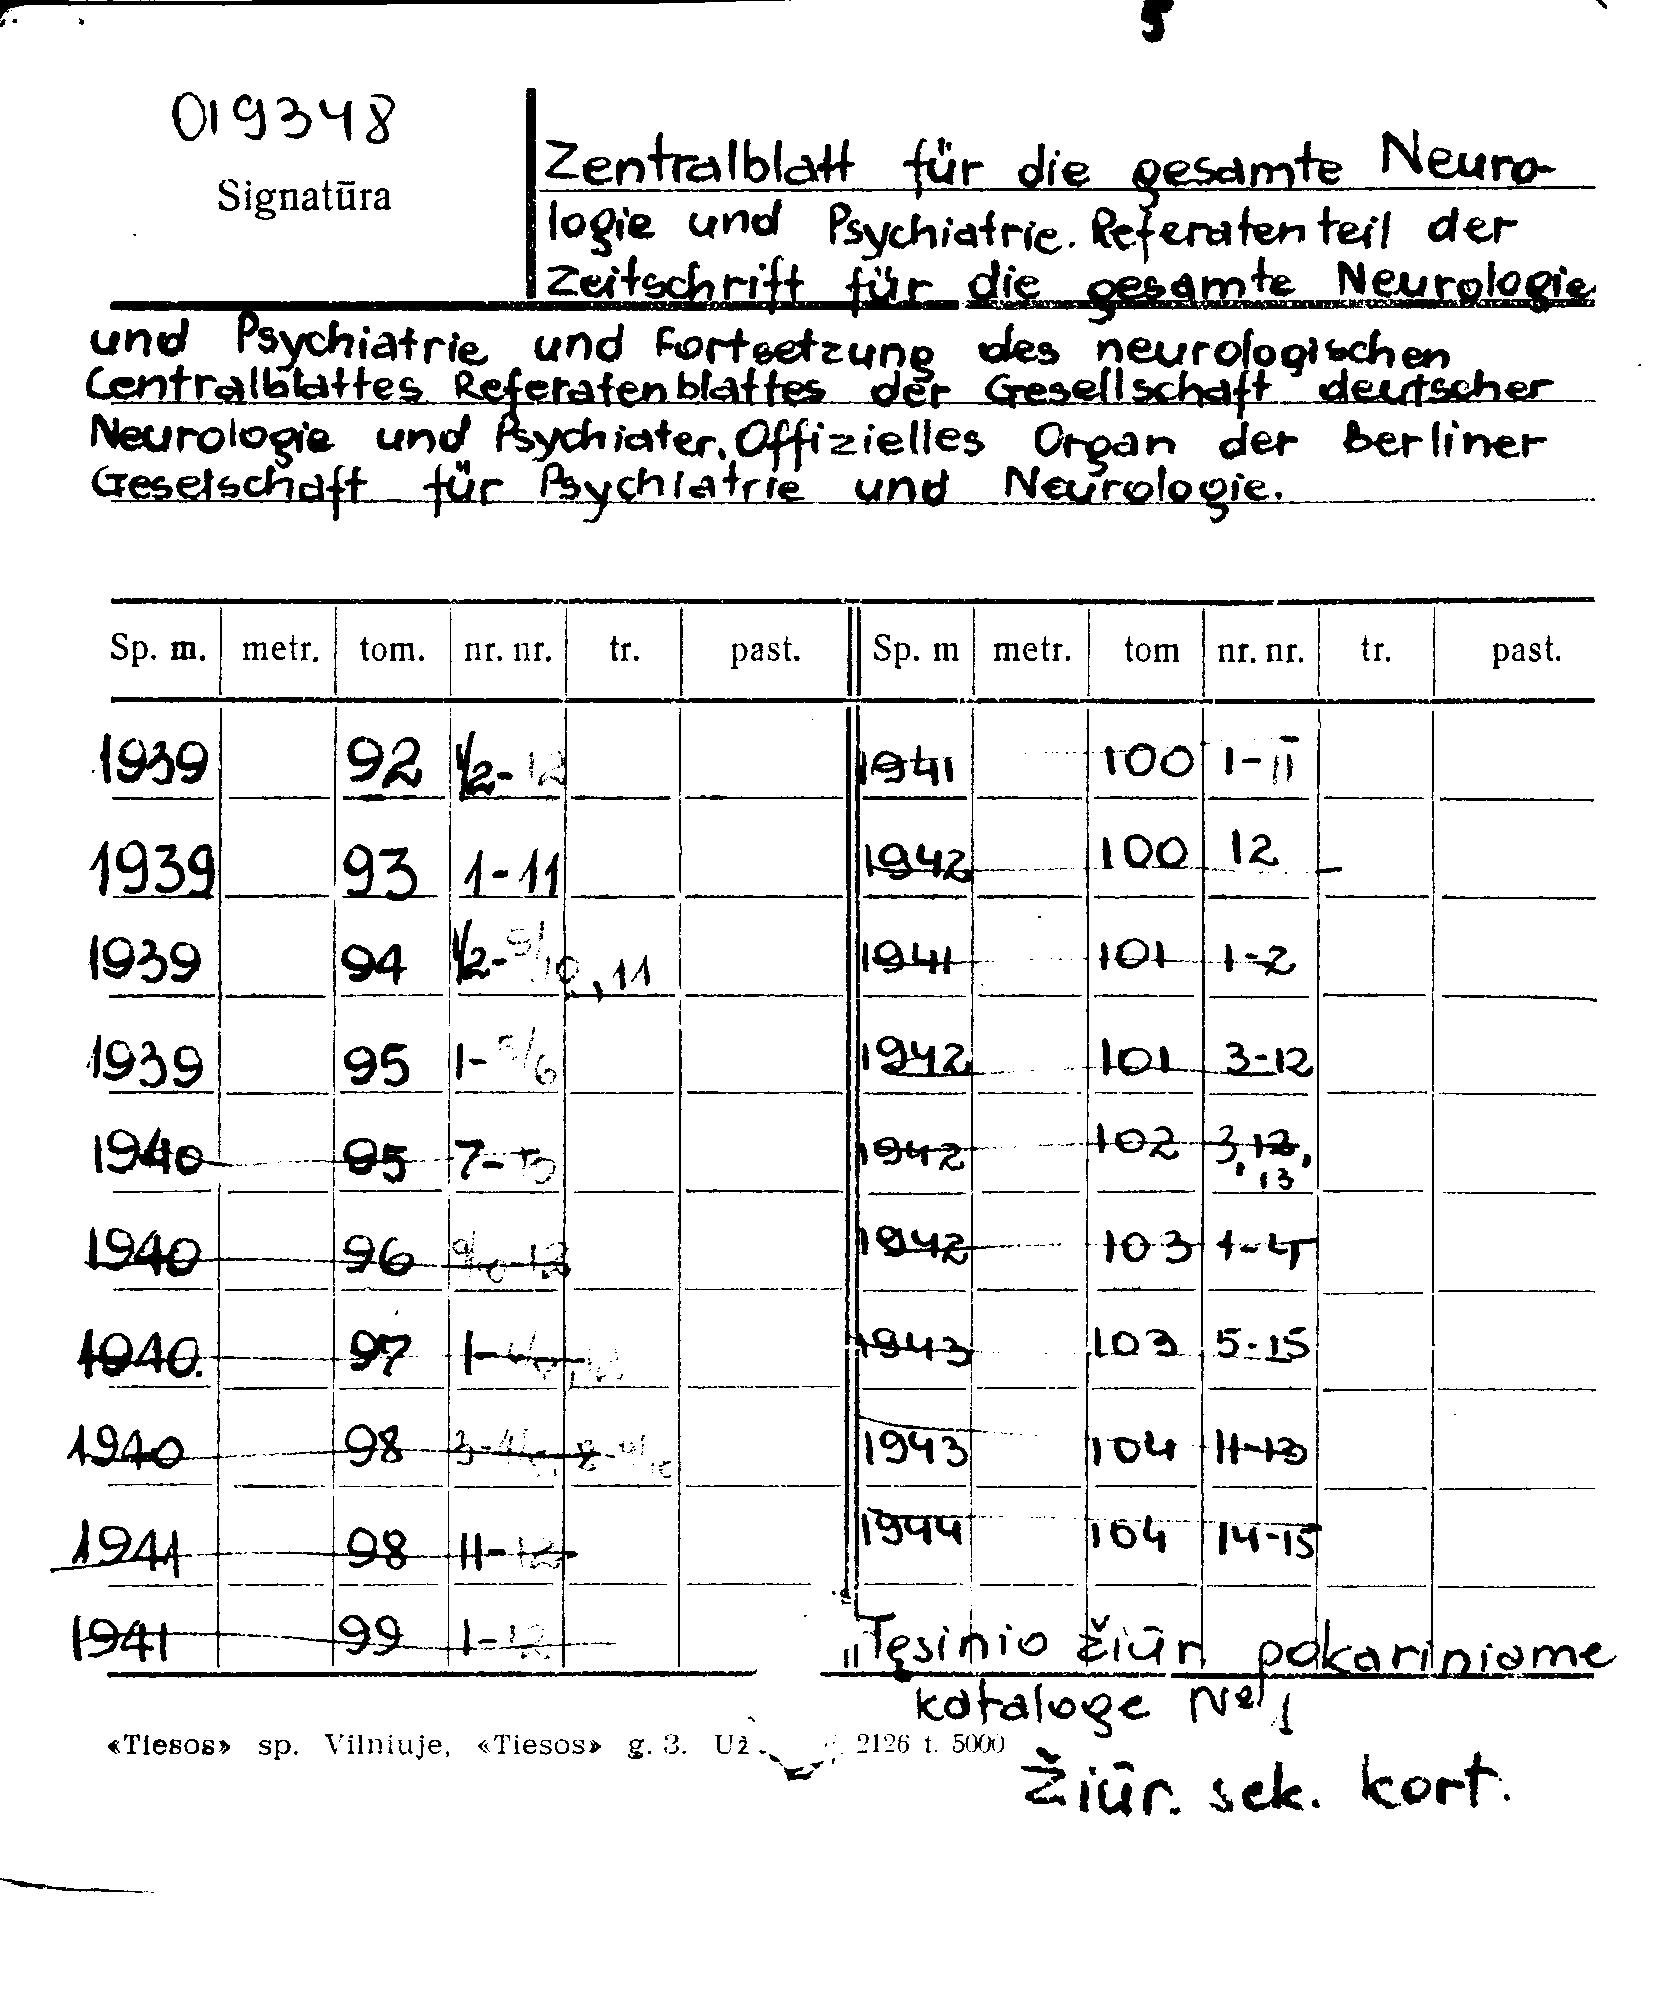 5
019348
Signatūra
Zentralblatt für die gesamte Neuro-
logie und Psychiatrie. Referatenteil der
Zeitschrift für die gesamte Neurologie
und Psychiatrie und Fortsetzung des neurologischen
Centralblattes Referatenblattes der Gesellschaft deutscher
Neurologie und Psychiater. Offizielles Organ der Berliner
Geselschaft für Psychiatrie und Neurologie.
Sp. m. metr. tom. nr. nr. tr. past. Sp. m metr. tom nr. nr. tr. past.
1939 92 1/2-12 1941 100 1-11
1939 93 1-11 1942 100 12
1939 94 1/2-9/10, 11 1941 101 1-2
1939 95 1-5/6 1942 101 3-12
1940 95 7- 1942 102 3, 12, 13
1940 96 -12 1942 103 1-4
1940. 97 1- 1943 103 5-15
1940 98 3-4/ 8 9/10 1943 104 11-13
1941 98 11-12 1944 104 14-15
1941 99 1-12 "Tęsinio žiūr pokariniame
kataloge № 1
«Tiesos» sp. Vilniuje, «Tiesos» g. 3. Už. 2126 t. 5000
Žiūr. sek. kort.